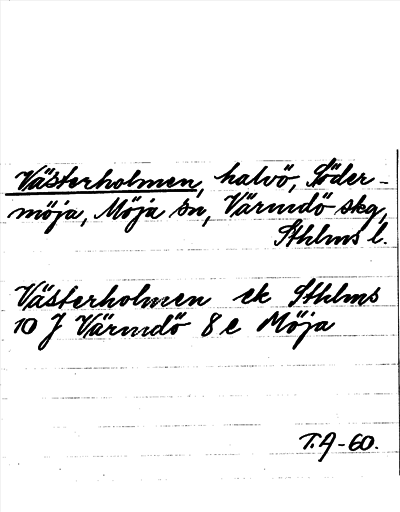 Västerholmen, halvö, Söder-
möja, Möja sn, Värmdö skg,
Sthlms l.
Västerholmen ek Sthlms
10 J Värmdö 8 e Möja
T.A-60.